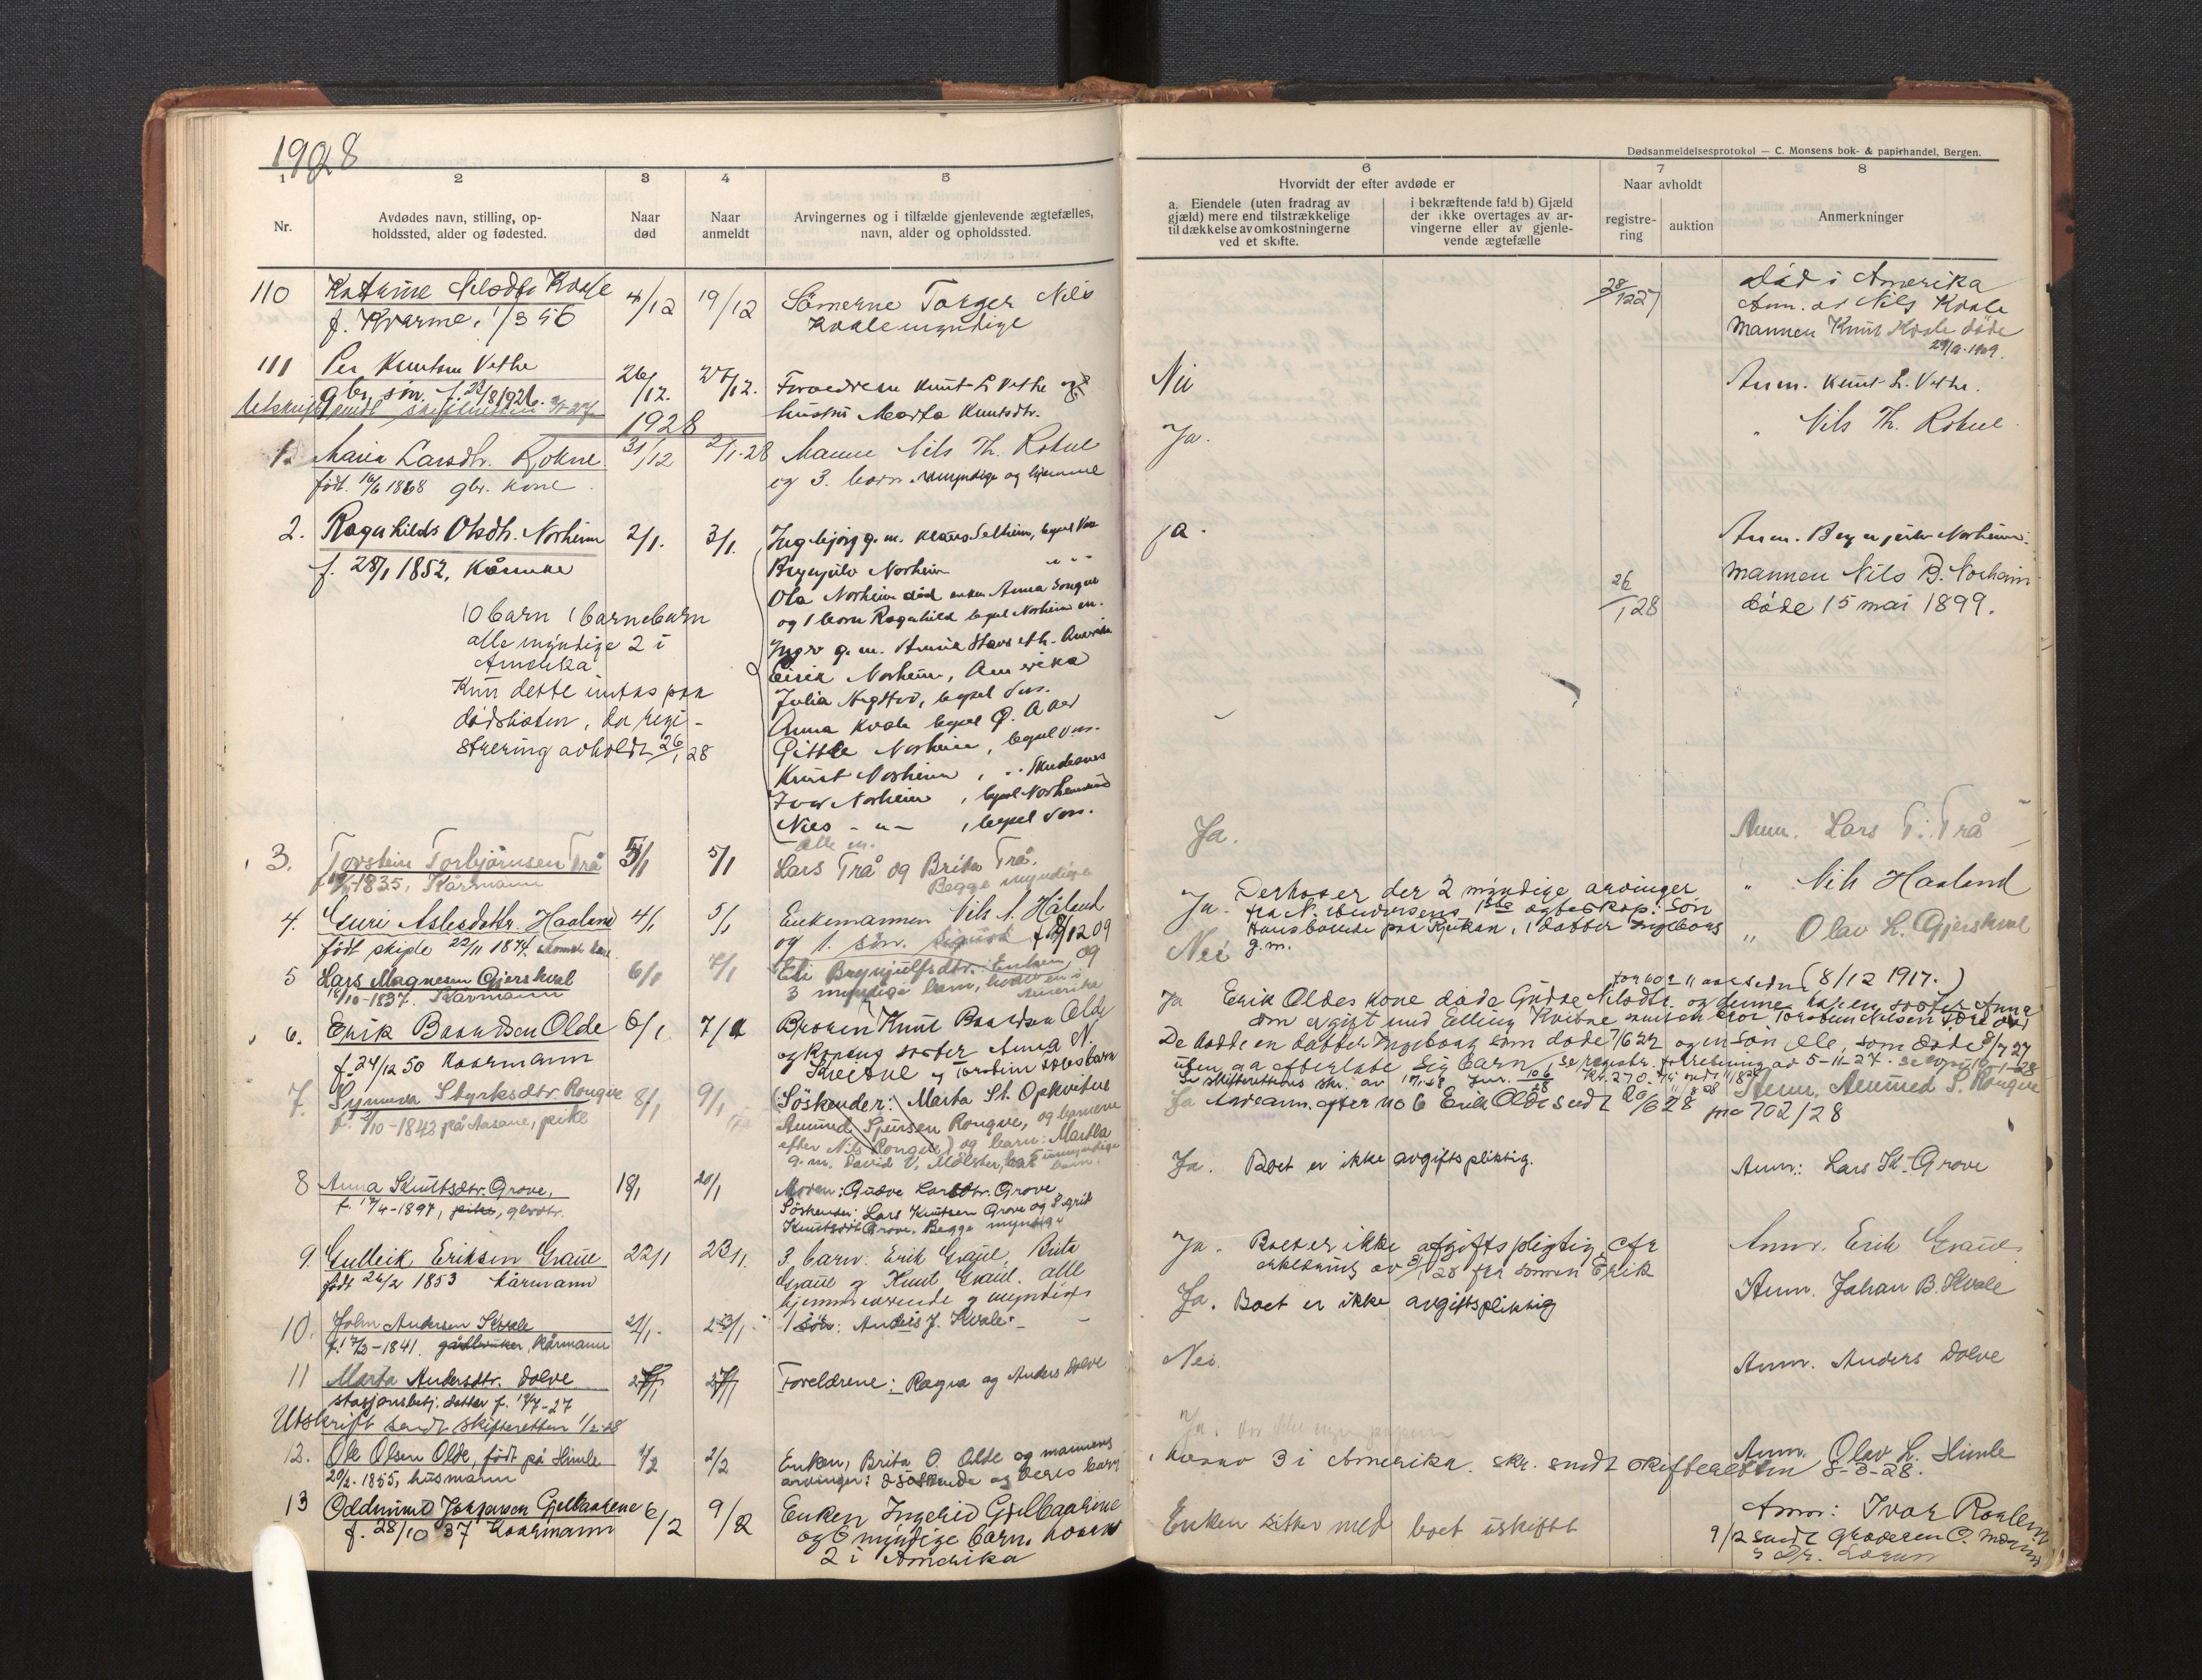 1928
Dødsanmeldelsesprotokol — C. Monsens bok- & papirhandel, Bergen.
1
2
3
4
5
Nr.
Avdødes navn, stilling, op-
holdssted, alder og fødested.
Naar
død
Naar
anmeldt
Arvingernes og i tilfælde gjenlevende ægtefælles,
navn, alder og opholdssted.
6
7
8
Hvorvidt der efter avdøde er
a. Eiendele (uten fradrag av
gjæld) mere end tilstrækkelige
til dækkelse av omkostningerne
ved et skifte.
i bekræftende fald b) Gjæld
der ikke overtages av ar-
vingerne eller av gjenle-
vende ægtefælle
Naar avholdt
registre-
ring
auktion
Anmerkninger
110 Katrine Nilsdtr Kvale 4/12 19/12 Sönnerne Torger Nils
f. Kvarme, 1/3 56 Kvale myndige
28/12 27
död i Amerika
Anm. av Nils Kvale
Mannen Knut Kvale döde
1909.
111 Per Knutsen Vethe 26/12. 27/12. Forældrene Knut L Vethe og
gbr. søn. f. 23/8 1926. hustru Marta Knutsdtr.
Nei
Anm. Knut L. Vethe.
Utskrift sendt skifteretten
1928
1. Maria Larsdtr. Rokne 31/12 2/1-28 Mannen Nils Th. Rokne
født. 16/6 1868 gbr. kone og 3. barn. myndige og hjemme
Ja.
" Nils Th. Rokne
2. Ragnhilds Olsdtr. Norheim 2/1. 3/1.
f. 28/1 1852, Kårenke
10 barn 1 barnebarn
alle myndige 2 i
Amerika
Kun dette intas paa
dödslisten, da regi-
strering avholdt 26/1 28
Ingebjørg g. m. Klaus Selheim, bopel Voss
Brynjulv Norheim " "
Ola Norheim död enken Anna Songve
og 1 barn Ragnhild bopel Norheim
Inger g. m. Amerika
Eirik Norheim, Amerika
Julia bopel Voss.
Anna Kvale bopel
Gitle Norheim, bopel Voss.
Knut Norheim, "
Ivar Norheim, bopel Norheimsund
Nils - " - , bopel Voss.
alle m.
ja.
26/1 28
Anm. Brynjulv Norheim.
mannen Nils B. Norheim
döde 15 mai 1899.
3. Torstein Torbjörnsen Trå 5/1 5/1 Lars Trå og Brita Trå.
1835, Kårmann Begge myndige
Ja.
Anm. Lars T. Trå
4. Guri Aslesdotter Haaland 4/1 5/1 Enkemannen Nils A. Håland
født skiple 22/11 1874. og 1. søn. Sigurd f 12 09
Ja. Derhos er der 2 myndige arvinger
fra N. Andersens 1ste egteskap: Søn
paa Rjukan, 1 datter Ingeborg
g.m.
" Nils Haaland
5 Lars Magnesen Gjerskval 6/1 7/1 Eli Brynjulfsdtr. Enken og
18/10-1837. Kårmann 3 myndige barn, hvorav en i
Amerika
Nei
" Olav L. Gjerskval
6. Erik Baardsen Olde 6/1 7/1 Broren Knut Baardsen Olde
f. 24/12 50 Kaarmann og konens søster Anna N.
Kvitne
Ja Erik Oldes kone döde Gudve Nilsdtr. og denne har en søster Anna
for 10 a 11 aar siden (8/12 1917.)
som er gift med Elling Kvitne
De hadde en datter Ingeborg som döde 7/6 22 og en søn Ole, som döde 9/7 27
uten at efterlate sig barn
7. Synneva Styrksdtr. Rongve 8/1 9/1 Söskender: Marta St. Opkvitne
10-1843 på Aasane, pike Amund Rongve, og barnene
efter Nils Rongve) og barn: Martha
g. m. David V. Mölster,
Ja Andre anm. efter no 6 Erik Olde sendt 20/6 28 jno 702/28
Anm. Amund S. Rongve
8 Anna Knutsdtr. Grove, 18/1 20/1 Moren: Gudve Larsdtr. Grove
f. 17/4-1897, pike, gbrdtr. Söskender: Lars Knutsen Grove og Sigrid
Knutsdtr Grove. Begge myndige
Ja. Boet er ikke avgiftspliktig.
Anm: Lars K. Grove
9. Gulleik Eriksen Graue 22/1 23/1. 3 barn: Erik Graue, Brita
født 26/2 1853 kårmann Graue og Knut Graue. alle
hjemmeværende og myndige
Ja. Boet er ikke afgiftspligtig. Cfr
erklæring av 3/1 28 fra sønnen Erik
Anm. Erik Graue
10. John Andersen Kvale 21/1. 23/1 1 søn: Anders J. Kvale. -
f. 17/3-1841. gårdbruker, Kårmann
Ja. Boet er ikke avgiftspliktig
Anm. Johan B. Kvale
11 Marta Andersdtr. Dolve 27/1 27/1 Foreldrene: Ragna og Anders Dolve
stasjonsbetj. datter f. 19/7-27
Nei.
Anm. Anders Dolve
Utskrift sendt skifteretten 1/2-28
12. Ole Olsen Olde, født på Himle 1/2 2/2 Enken, Brita O. Olde og mannens
20/2. 1855, husmann arvinger: söskende og deres barn
Ja.
hvorav 3 i Amerika. skr. sendt skifteretten 8-3-28.
Anm. Olav L. Himle
13 Oddmund Gjelbaakene 6/2 9/2 Enken Ingerid Gjelbaakene
f. 28/10 37 Kaarmann og 6 myndige barn, hvorav
2 i Amerika
Enken sitter med boet uskiftt
Anm: Ivar
9/2 sendt graveren O.